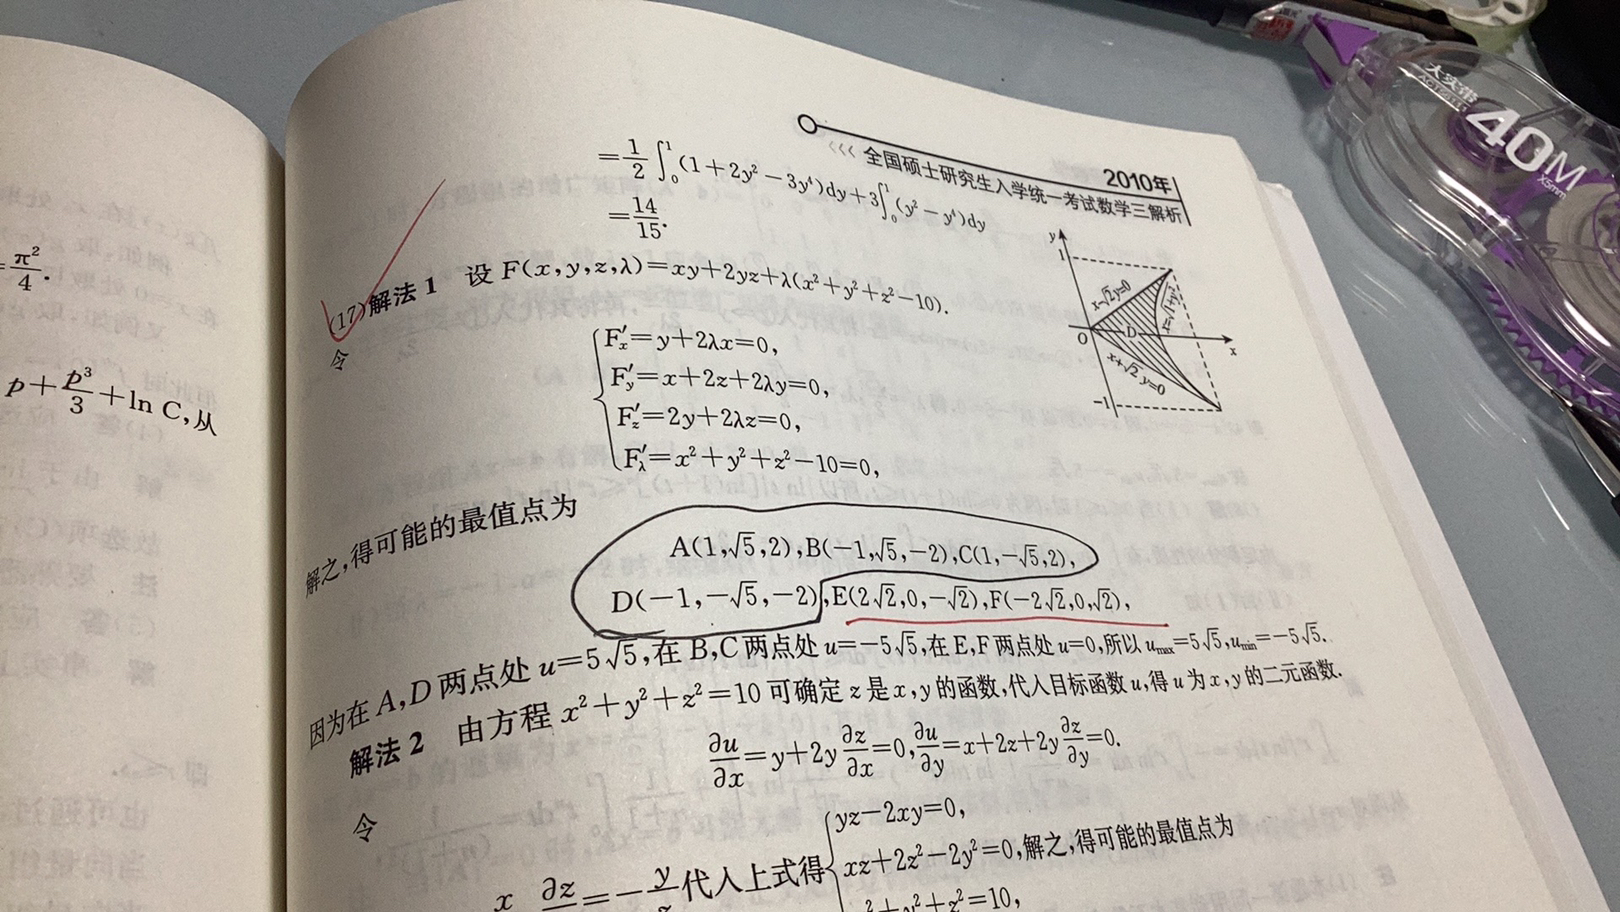 =π²/4.
p+p³/3+ln C,从
2010年
<<< 全国硕士研究生入学统一考试数学三解析
=1/2∫₀¹(1+2y²-3y⁴)dy+3∫₀¹(y²-y⁴)dy
=14/15.
(17)解法1 设 F(x,y,z,λ)=xy+2yz+λ(x²+y²+z²-10).
令
F′ₓ=y+2λx=0,
F′ᵧ=x+2z+2λy=0,
F′_z=2y+2λz=0,
F′_λ=x²+y²+z²-10=0,
y
1
x-√2y=0
O
D
x
x+√2y=0
-1
解之,得可能的最值点为
A(1,√5,2),B(-1,√5,-2),C(1,-√5,2),
D(-1,-√5,-2),E(2√2,0,-√2),F(-2√2,0,√2),
因为在A,D两点处u=5√5,在B,C两点处u=-5√5,在E,F两点处u=0,所以u_max=5√5,u_min=-5√5.
解法2 由方程x²+y²+z²=10可确定z是x,y的函数,代入目标函数u,得u为x,y的二元函数.
∂u/∂x=y+2y ∂z/∂x=0,∂u/∂y=x+2z+2y ∂z/∂y=0.
令
yz-2xy=0,
代入上式得 xz+2z²-2y²=0,解之,得可能的最值点为
x²+y²+z²=10,
大实惠
40M
X5mm